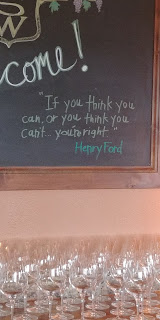 SW
come!
"If you think you
can, or you think you
can't... you're right."
Henry Ford